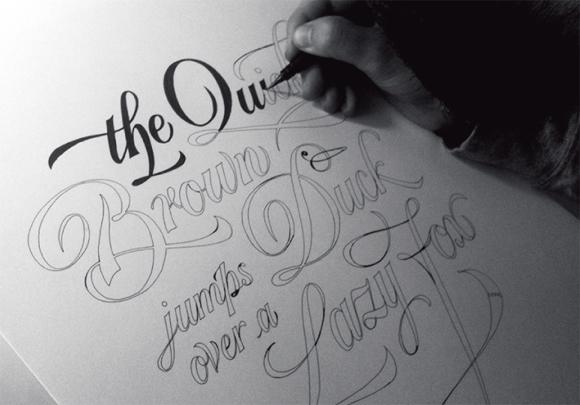 the Quick
Brown Duck
jumps
over a Lazy Fox